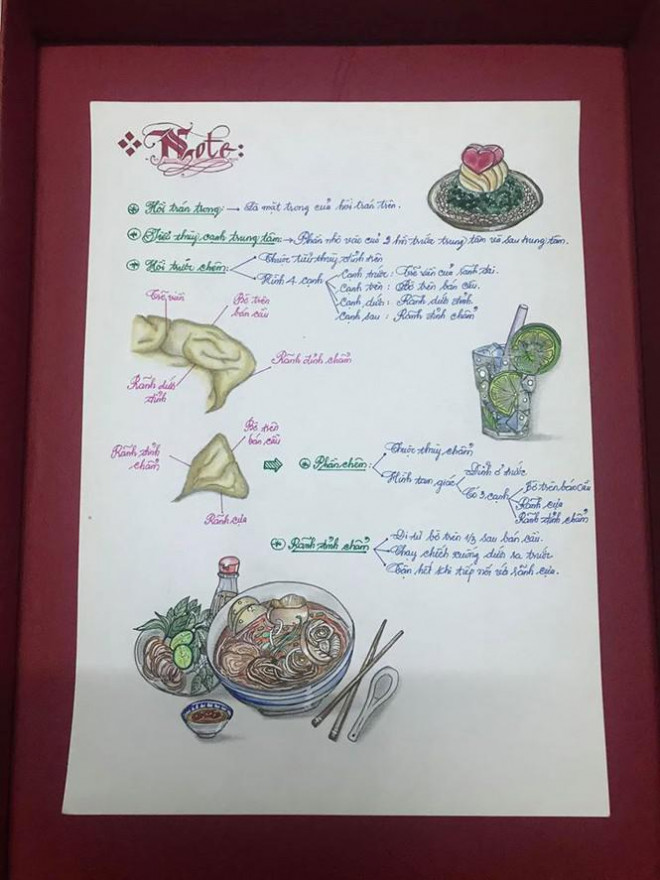 Note:
Hồi trán trong: → Là mặt trong của hồi trán trên.
Tiểu thùy cạnh trung tâm: → Phần nhỏ vào của 2 hồi trước trung tâm và sau trung tâm.
Hồi trước chêm:
Thuộc tiểu thùy đỉnh trên
Hình 4 cạnh
Cạnh trước: Trẽ viền của rãnh đai.
Cạnh trên: Bờ trên bán cầu.
Cạnh dưới: Rãnh dưới đỉnh
Cạnh sau: Rãnh đỉnh chẩm
Trẽ viền
Bờ trên bán cầu
Rãnh đỉnh chẩm
Rãnh dưới đỉnh
Bờ trên bán cầu
Rãnh đỉnh chẩm
Rãnh cựa
Phần chêm
Thuộc thùy chẩm
Hình tam giác
Đỉnh ở trước
Có 3 cạnh
Bờ trên bán cầu
Rãnh cựa
Rãnh đỉnh chẩm
Rãnh đỉnh chẩm
Đi từ bờ trên 1/3 sau bán cầu.
Chạy chếch xuống dưới ra trước
Tận hết khi tiếp nối với rãnh cựa.